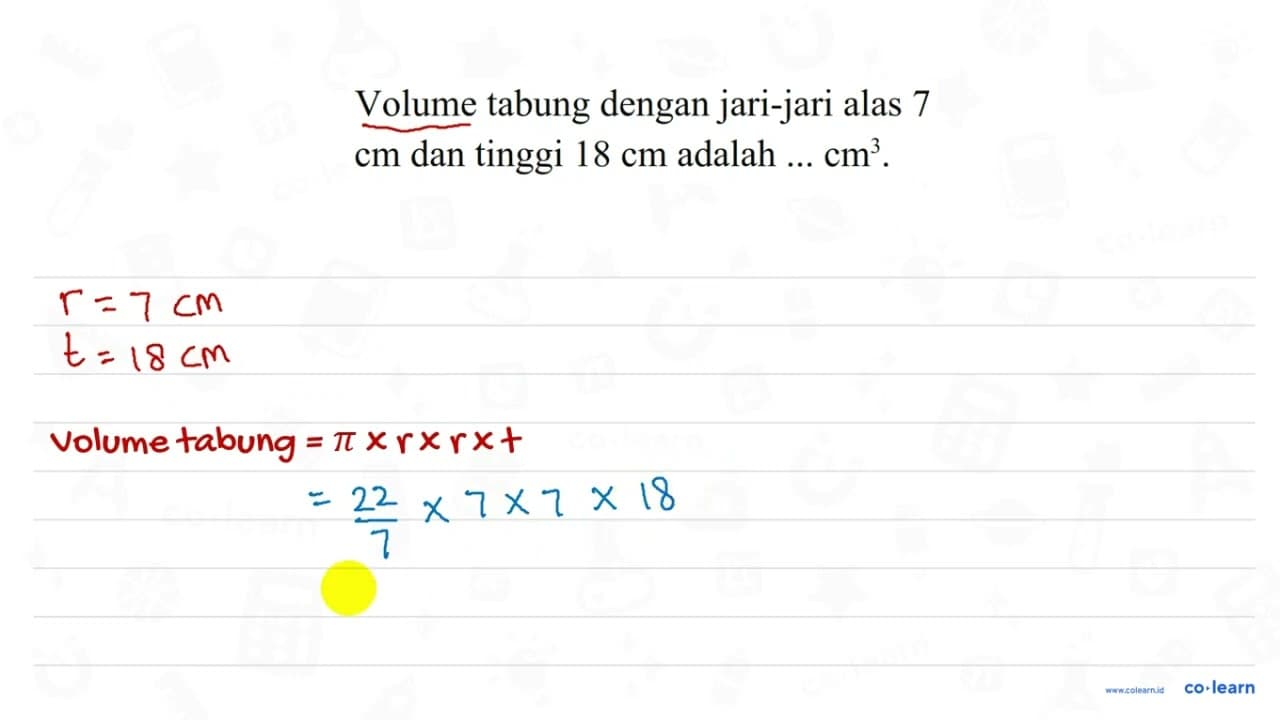 Volume tabung dengan jari-jari alas 7
cm dan tinggi 18 cm adalah ... cm³.
r = 7 cm
t = 18 cm
Volume tabung = π x r x r x t
= 22/7 x 7 x 7 x 18
www.colearn.id co·learn